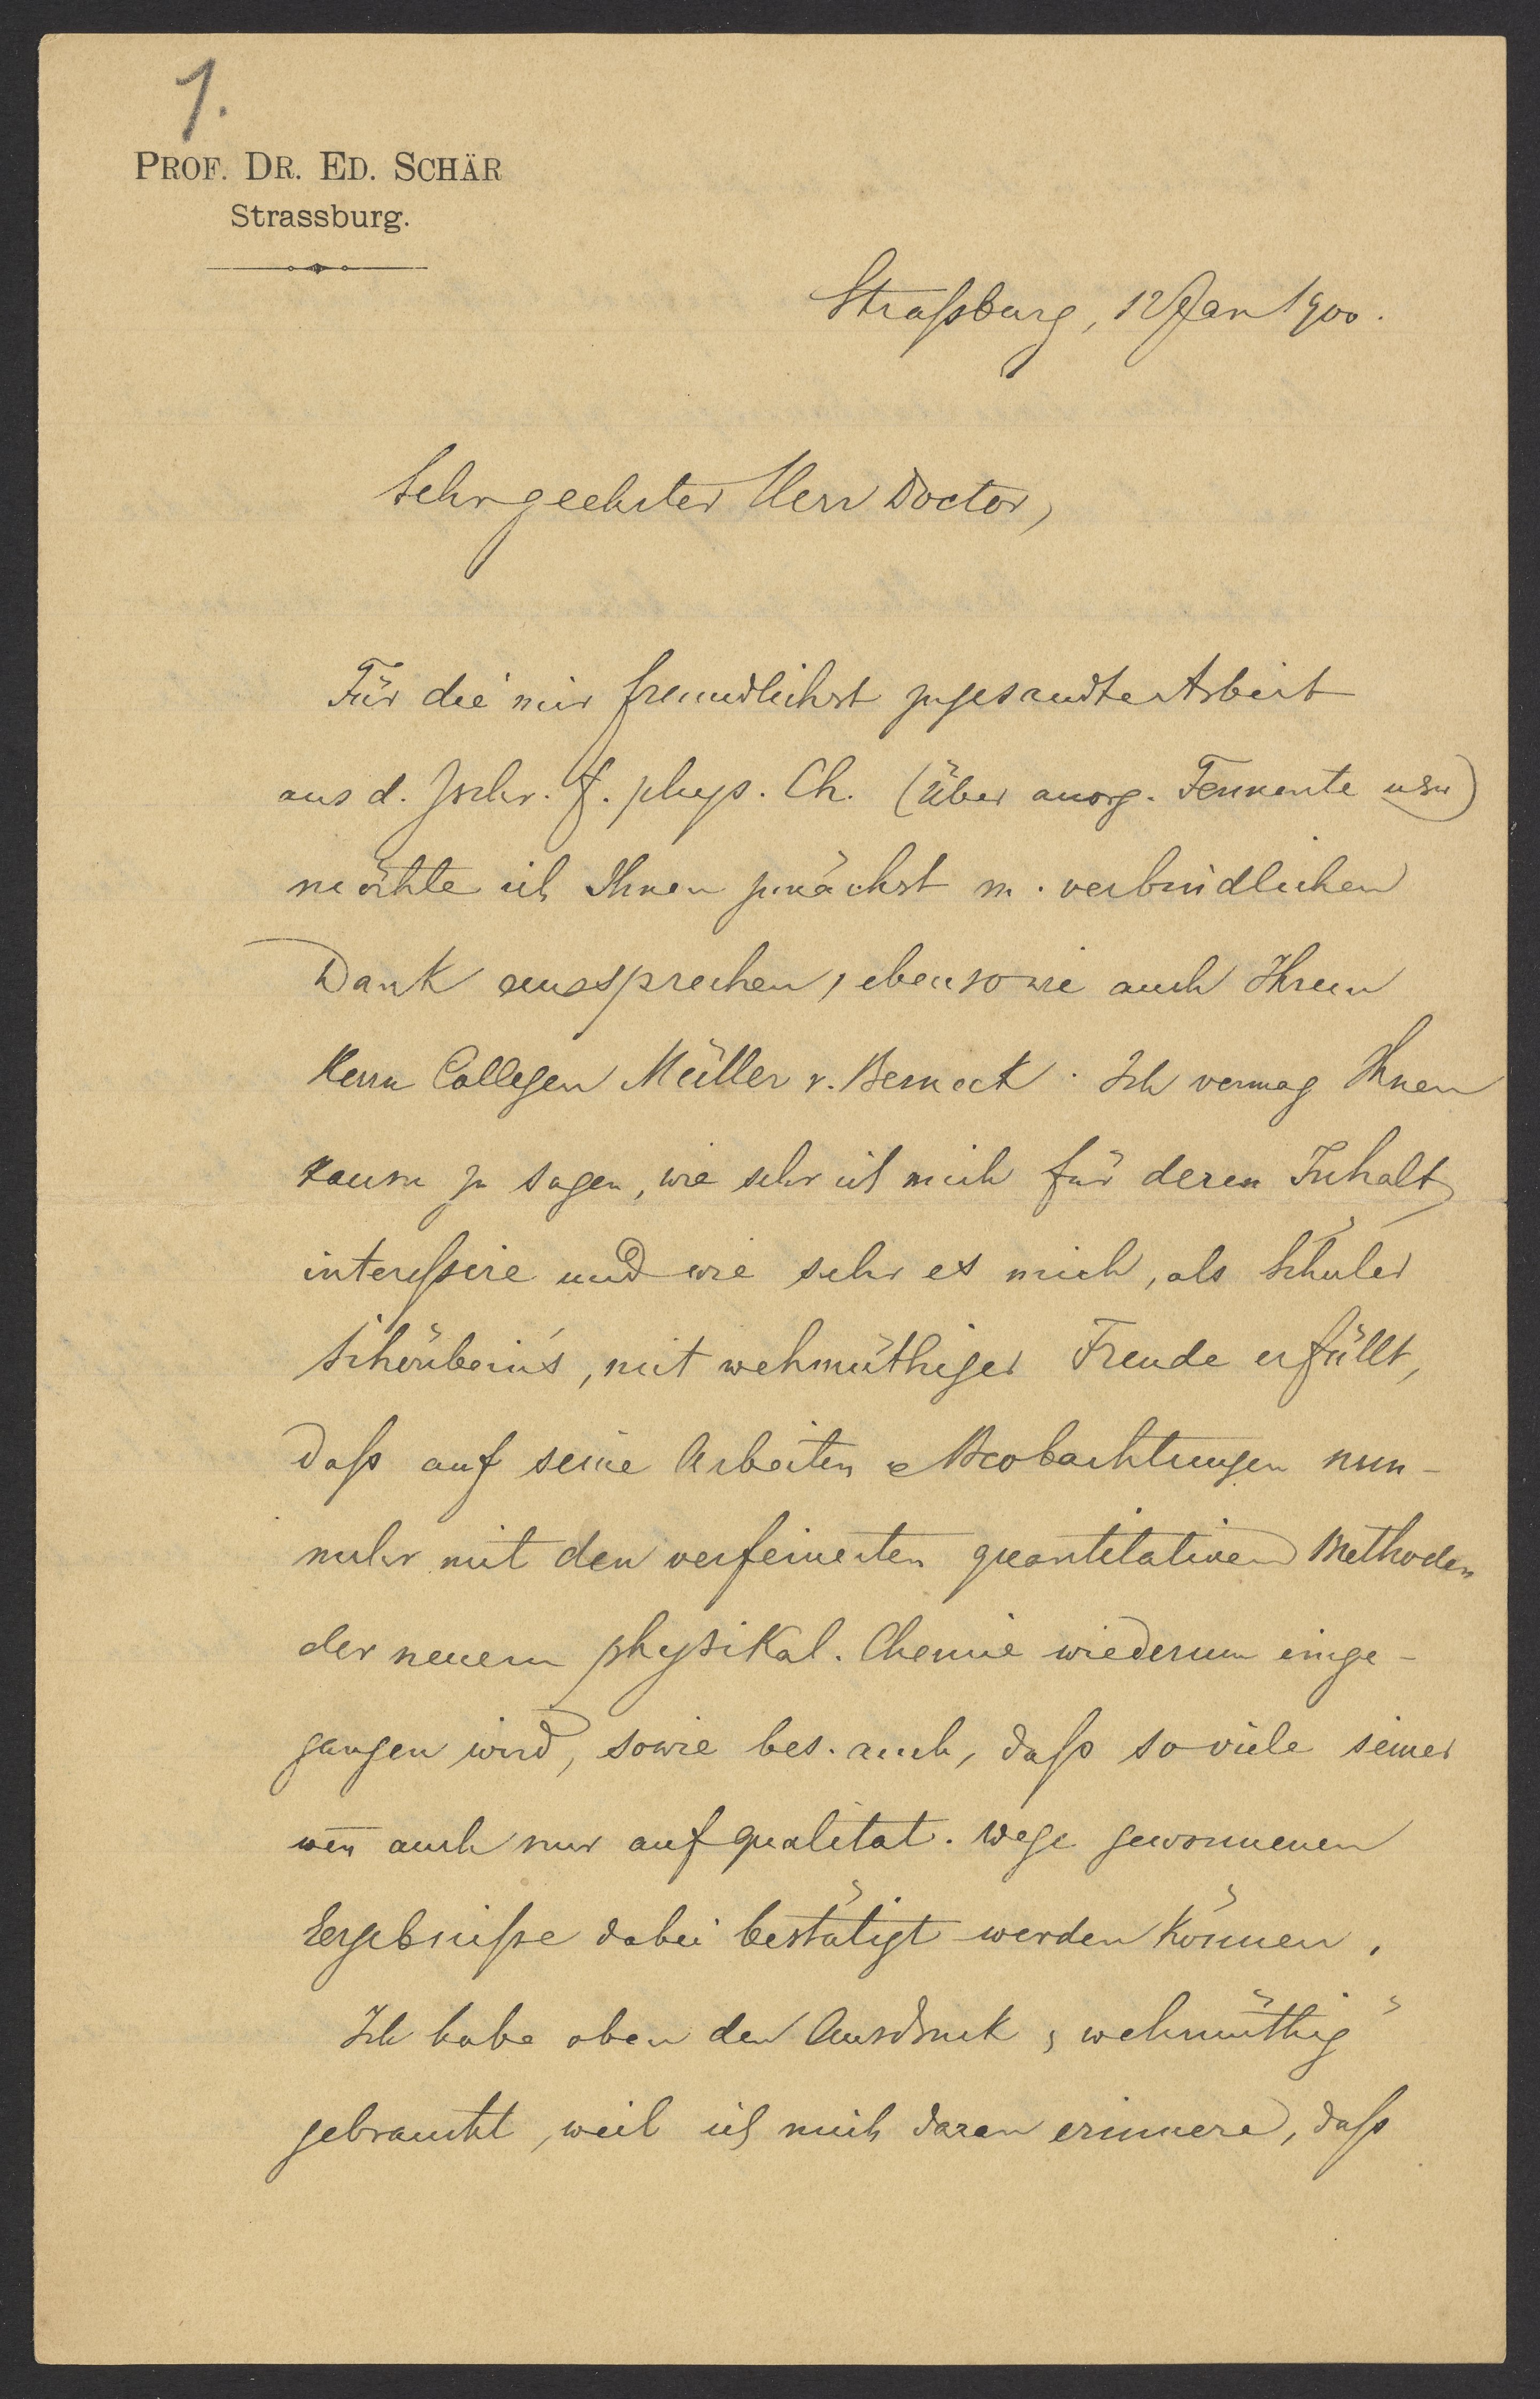 1.
PROF. DR. ED. SCHÄR
Strassburg.
Straßburg, 12 Jan 1900.
Sehr geehrter Herr Doctor,
Für die mir freundlichst zugesandte Arbeit
aus d. Zschr. f. phys. Ch. (Über anorg. Fermente usw)
möchte ich Ihnen zunächst m. verbindlichen
Dank aussprechen, ebenso wie auch Ihrem
Herrn Collegen Müller v. Berneck. Ich vermag Ihnen
kaum zu sagen, wie sehr ich mich für deren Inhalt
interessire und wie sehr es mich, als Schüler
Schönbein's, mit wehmüthiger Freude erfüllt,
daß auf seine Arbeiten & Beobachtungen nun-
mehr mit den verfeinerten quantitativen Methoden
der neuern physikal. Chemie wiederum einge-
gangen wird, sowie bes. auch, daß so viele seiner
weñ auch nur auf qualitat. Wege gewonnenen
Ergebniße dabei bestätigt werden können.
Ich habe oben den Ausdruck „wehmüthig“
gebraucht, weil ich mich daran erinnere, daß